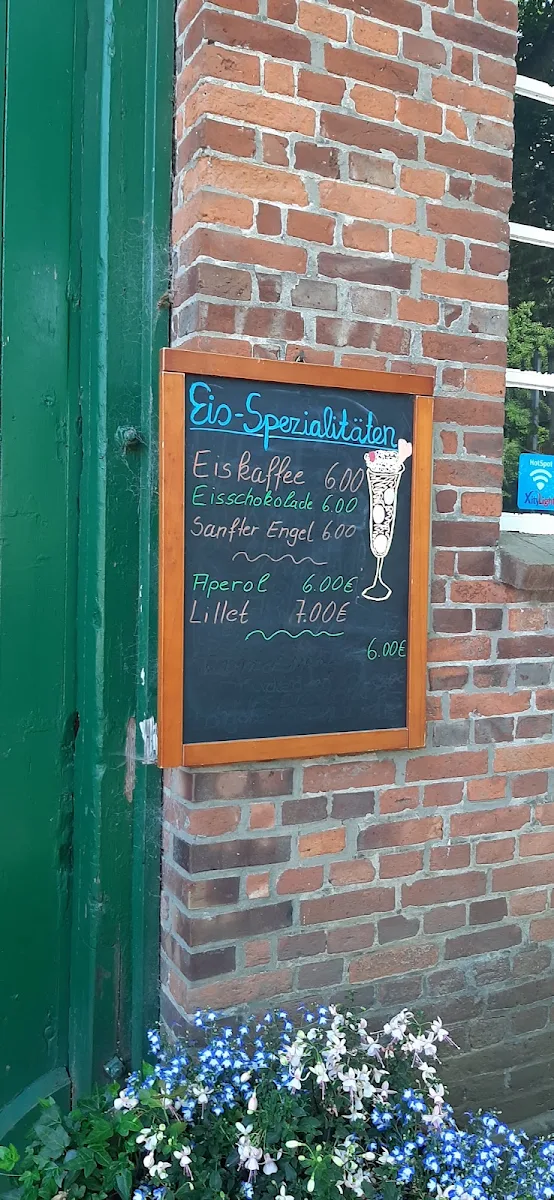 Eis-Spezialitäten
Eiskaffee 6.00
Eisschokolade 6.00
Sanfter Engel 6.00
Aperol 6.00€
Lillet 7.00€
6.00€
HotSpot